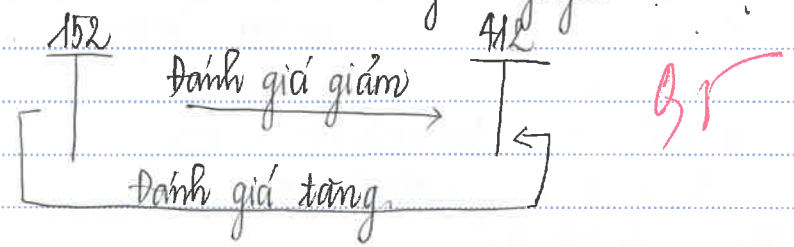 152 412
Đánh giá giảm
Đánh giá tăng